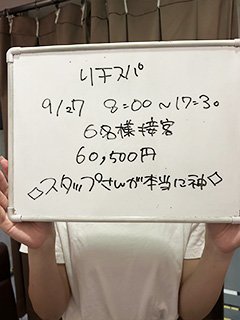 リテスパ
9/27 8:00～17:30
6名様接客
60,500円
◇スタッフさんが本当に神◇